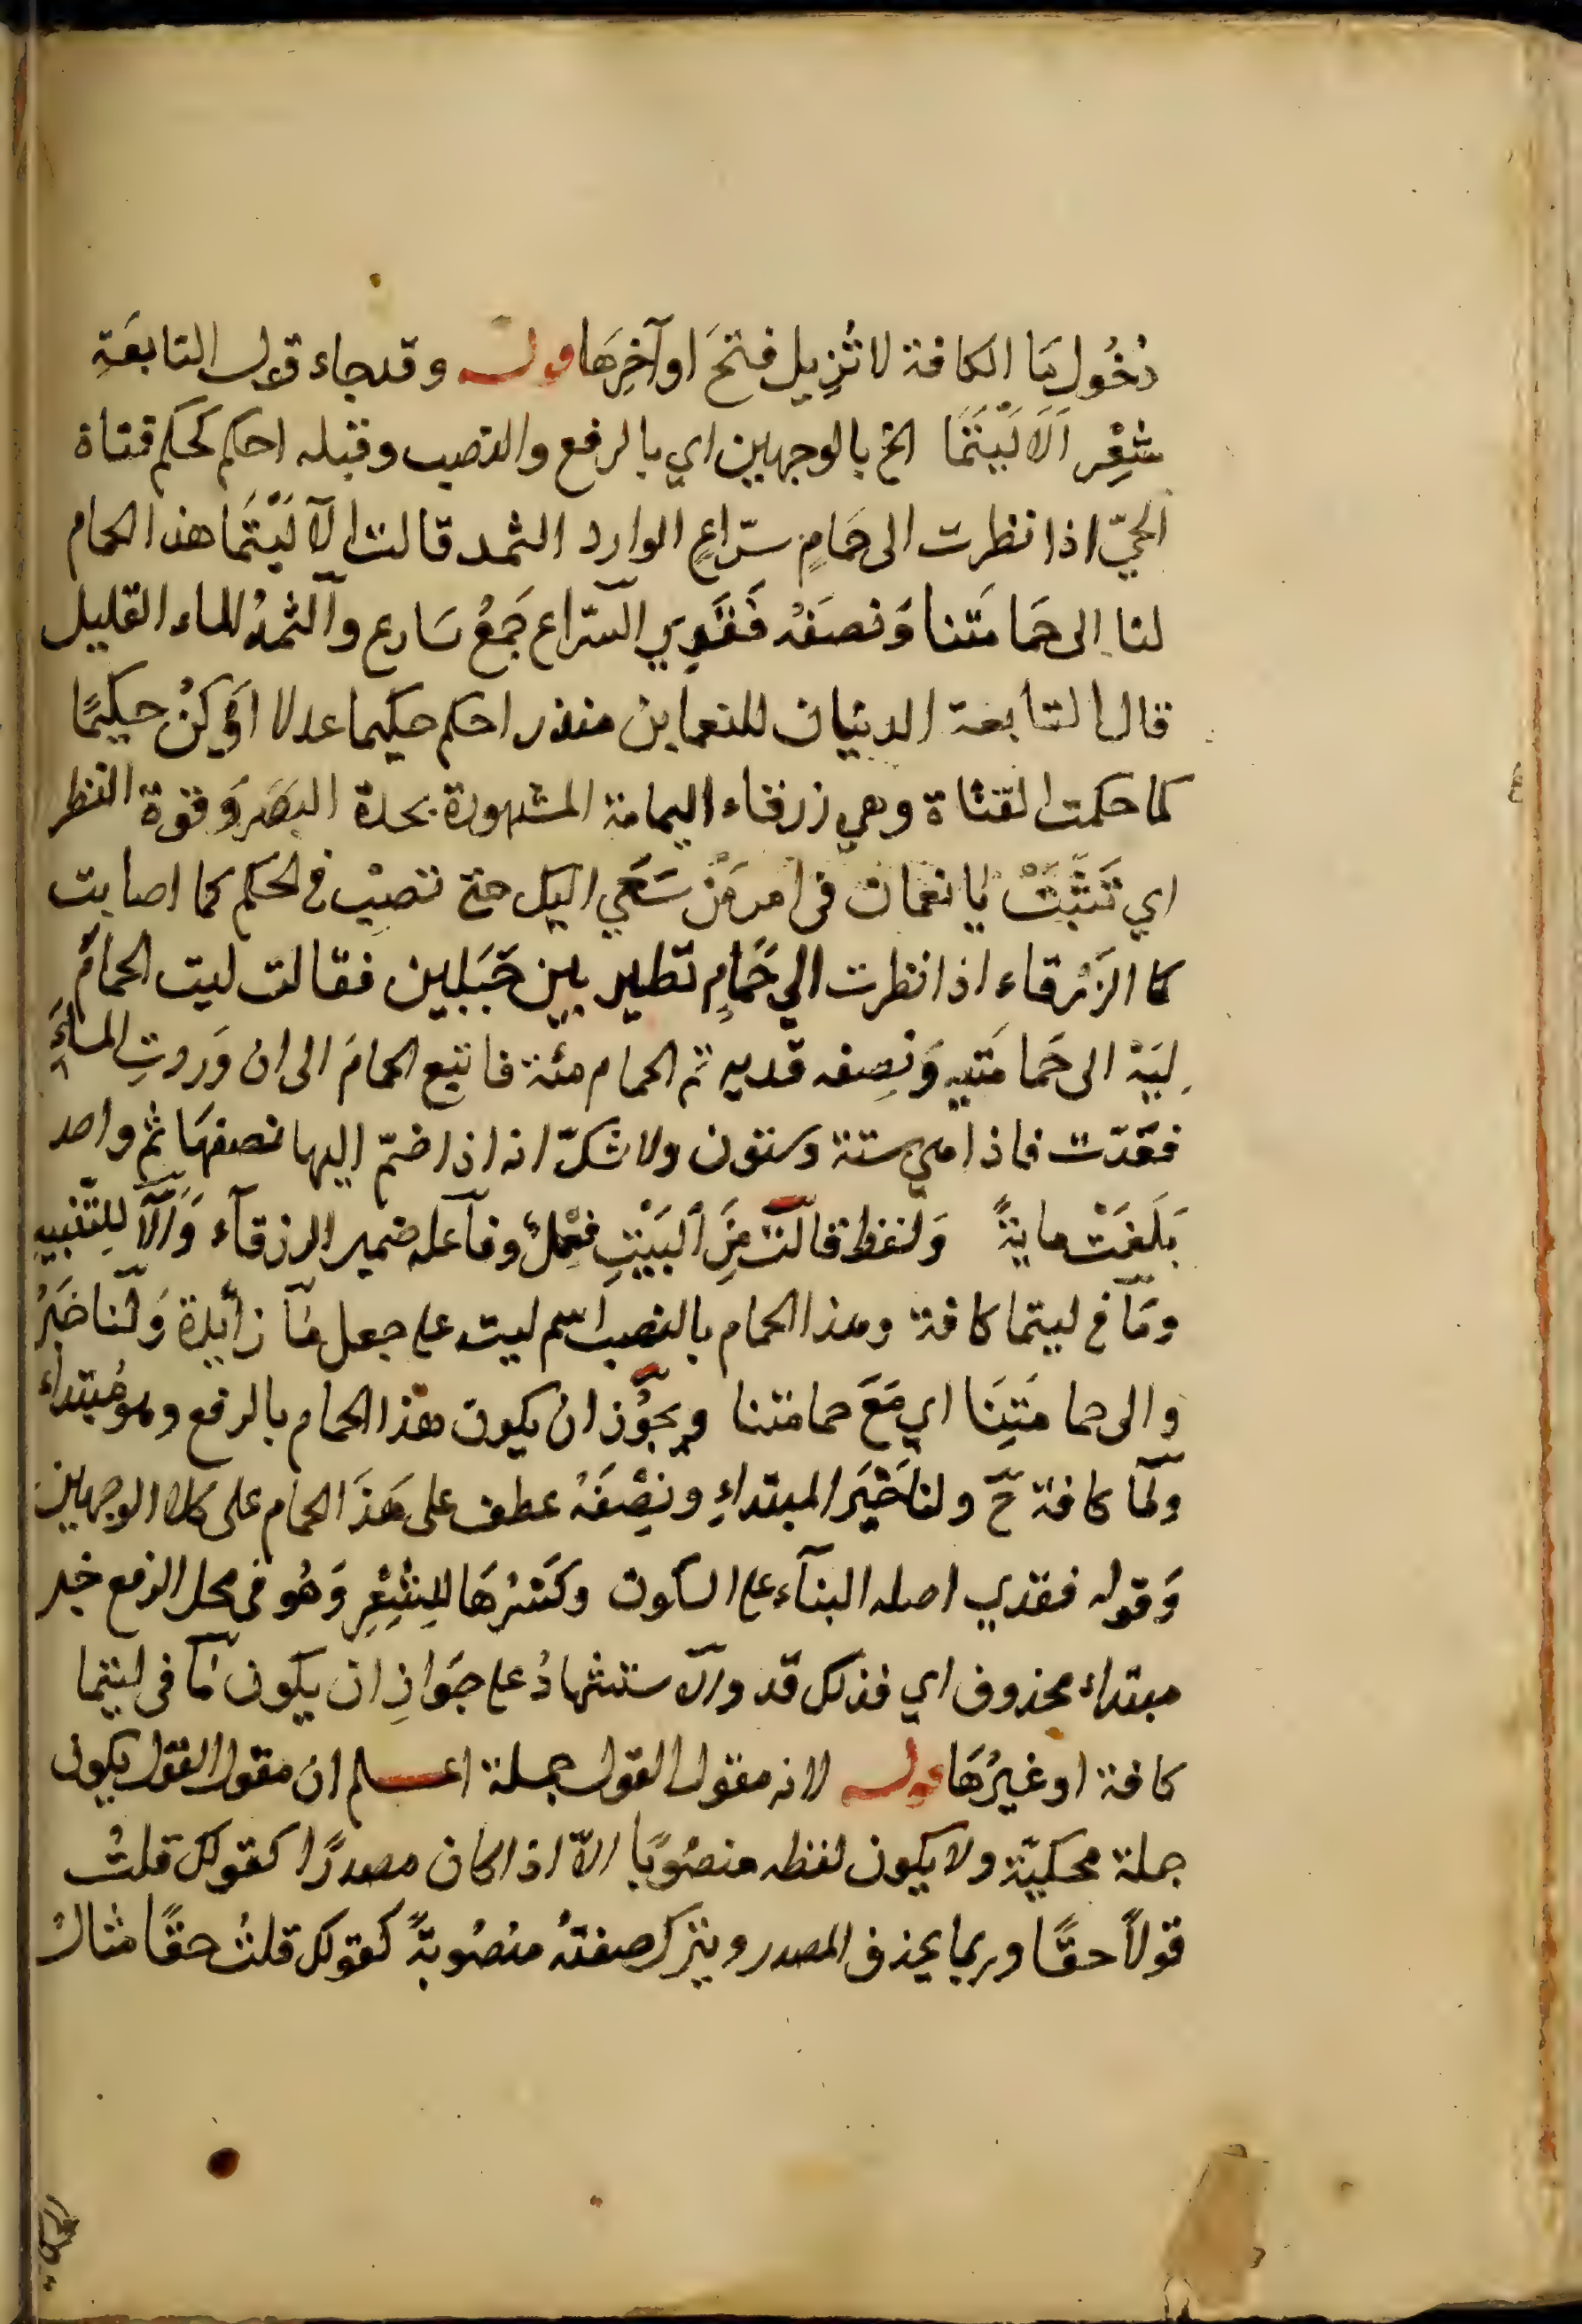 دُخُول مَا الكافة لا تُزِيل فتحَ اوآخِرِهَا قوله وقد جاء قول النابغَةِ
شِعْر اَلَا لَيْتَمَا الخ بالوجهين اي بالرفع والنصب وقبله احكم كحكم فتاة
الحيّ اذا نظرت الى حَمَامٍ سرّاعٍ الوارد الثمد قالت الآ لَيْتَمَا هذا الحمام
لنا الى حَمَامَتنا وَنصفَهُ فَقَدِي السّراع جَمْعُ سَارع وآلثمدُ الماء القليل
قال النابغة الدنيان للنعمابن منذر احكم حكيما عدلا اَيْ كُنْ حيكمًا
كما حكمت الفتاة وهي زرقاء اليمامة المشهورة بحدة البَصَر وَقوة النظر
اي تَثَبَّتْ يا نعمان فى امر مَنْ سَعَي اليك حتى تصيْب فى الحكم كما اصابت
كا الزَرْقاء اذا نظرت الي حَمَامٍ تطير بين جَبَلين فقالت ليت الحمامَ
لِيَهْ الى حَمَامَتيه وَنِصفه قديه تم الحمام مئة فاتبع الحمامَ الى ان وَردتِ الماءَ
فعَدّت فاذا هي ستة وستون ولا شكّ انه اذا ضمّ اليها نصفهَا ثم واحد
بَلَغَتْ مايةً وَلفظ قالَتْ مِنَ البَيْتِ فِعْلٌ وفآعله ضمير الزرقآء وَاَلآ لِلتّنبيهِ
ومَا فى ليتما كافة وهذا الحمام بالنصب اسم ليت على جعل مَا زأيدة وَلَنا خَبَرُ
والى حمامَتِنَا اي مَعَ حمامتنا ويجوّز ان يكون هذا الحمام بالرفع وهو مُبتداء
ولَمَا كافة حّ ولنا خَبَر المبتداءِ ونِصْفَهُ عطف على هَذَا الحمام على كلا الوجهين
وَقوله فقدي اصله البنآء على السكون وكَسْرُهَا لِلشِعْرِ وَهُو فى محل الرفع خبر
مبتداء محذوف اي فذلك قد والآستشهادُ على جَوَازِ ان يكون مَا فى ليتما
كافة او غيرُهَا قوله لانه مقول القول جملة اعلم ان مقول القول يكون
جملة محكيّة ولا يكون لفظه منصُوبًا الاّ اذا كان مصدرًا كقولك قلتُ
قولاً حقًّا وربما يحذف المصدر ويترك صفتهُ منصُوبةً كقولك قلتُ حقًا مثالُ